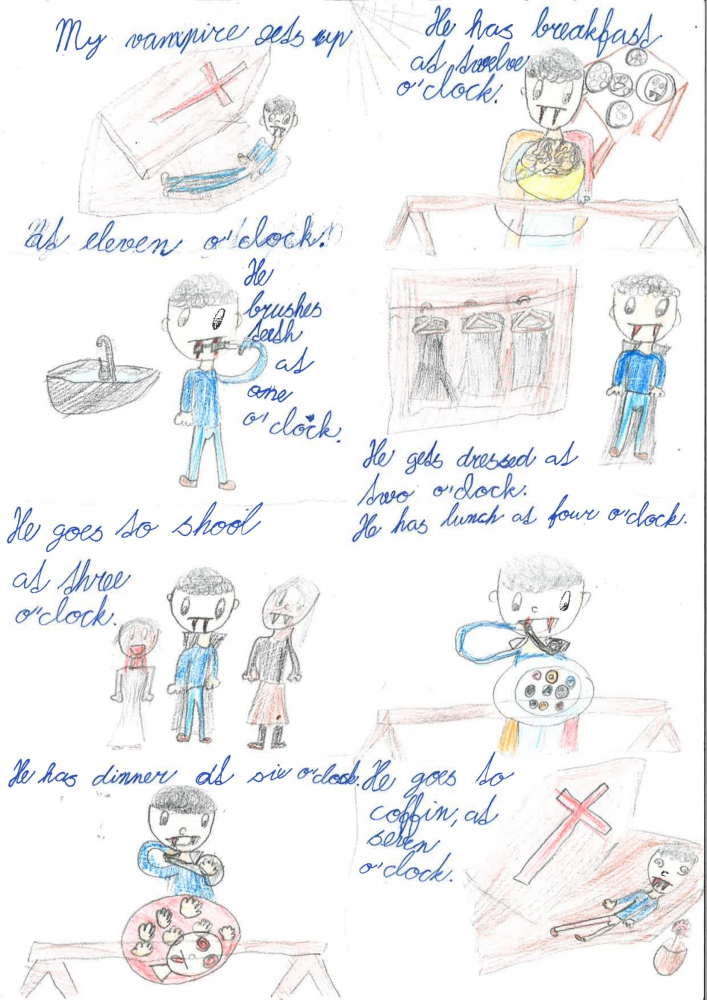 My vampire gets up
at eleven o'clock.
He has breakfast
at twelve
o'clock.
He
brushes
teeth
at
one
o'clock.
He gets dressed at
two o'clock.
He goes to shool
at three
o'clock.
He has lunch at four o'clock.
He has dinner at six o'clock.
He goes to
coffin, at
seven
o'clock.